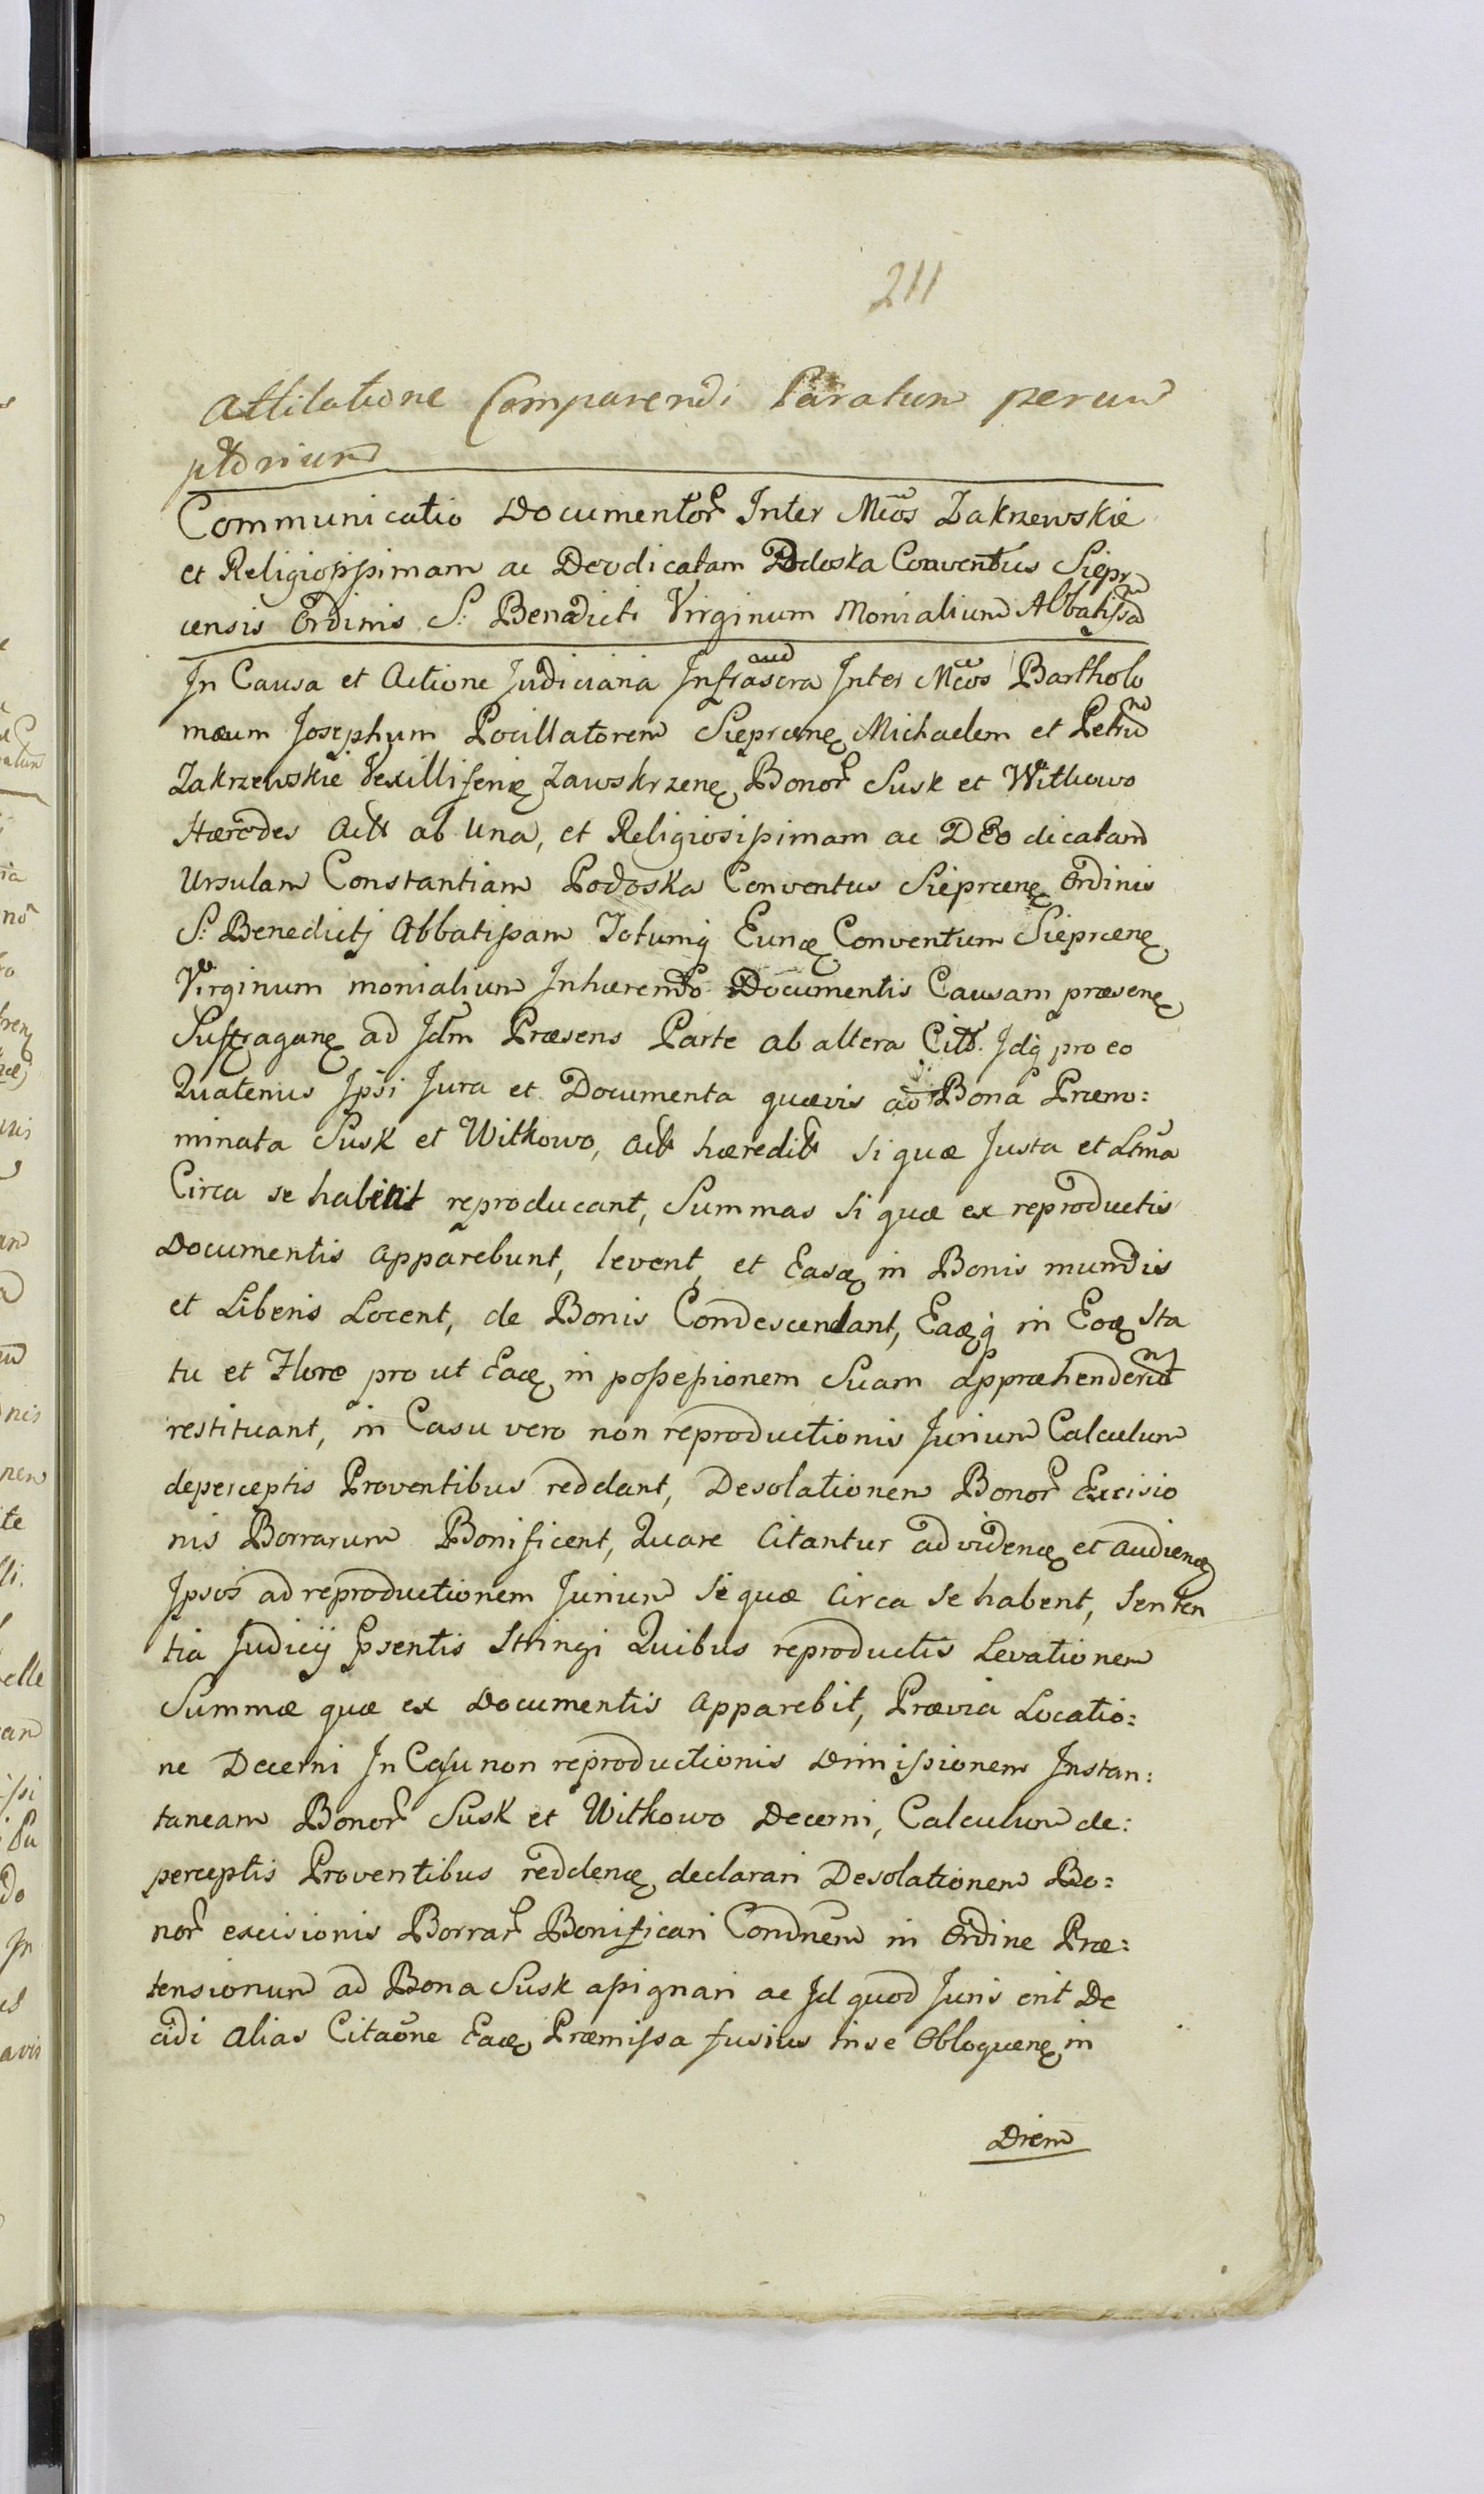 211
Attilatione Comparendi Paratum perem
ptorium
Communicatio Documentor Inter Mcos Zakrzewskie
et Religiosissimam ac Deodicatam Podoska Conventus Siepr
censis Ordinis S: Benedicti Virginum Monialium Abbatissam
In Causa et Actione Judiciaria Infrascra Inter Mcos Bartholo
mæum Josephum Pocillatorem Sieprcens Michaelem et Petrum
Zakrzewskie Vexilliferis Zawskrzens Bonor Susk et Witkowo
Hæredes Actt ab Una, et Religiosissimam ac DEo dicatam
Ursulam Constantiam Podoska Conventus Sieprcens Ordinis
S: Benedicti Abbatissam Totumq Eund Conventum Sieprcens
Virginum monialium Inhærendo Documentis Causam præsens
Suffragans ad Jdm Præsens Parte ab altera Citt. Jdq pro eo
Quatenus Ipsi Jura et Documenta quævis ad Bona Præno:
minata Susk et Witkowo, Actt hæreditt si quæ Justa et Ltma
Circa se habent reproducant, Summas si quæ ex reproductis
Documentis apparebunt, levent, et Easd in Bonis mundis
et Liberis Locent, de Bonis Condescendant, Eadq in Eod Sta
tu et Flore pro ut Ead in possessionem Suam appræhenderunt
restituant, in Casu vero non reproductionis Jurium Calculum
deperceptis Proventibus reddant, Desolationem Bonor Excisio
nis Borrarum Bonificent, Quare Citantur ad vidend et audiend
Ipsos ad reproductionem Jurium Si quæ Circa se habent, Senten
tia Judicij Psentis Stringi Quibus reproductis Levationem
Summæ quæ ex Documentis apparebit, Prævia Locatio:
ne Decerni In Casu non reproductionis Dimissionem Instan:
taneam Bonor Susk et Witkowo Decerni, Calculum de:
perceptis Proventibus reddend declarari Desolationem Bo:
nor excisionis Borrar Bonificari Condnem in Ordine Præ:
tensionum ad Bona Susk assignari ac Id quod Juris erit De
cidi alias Citaone Ead Præmissa fusius in se Obloquens in
Diem